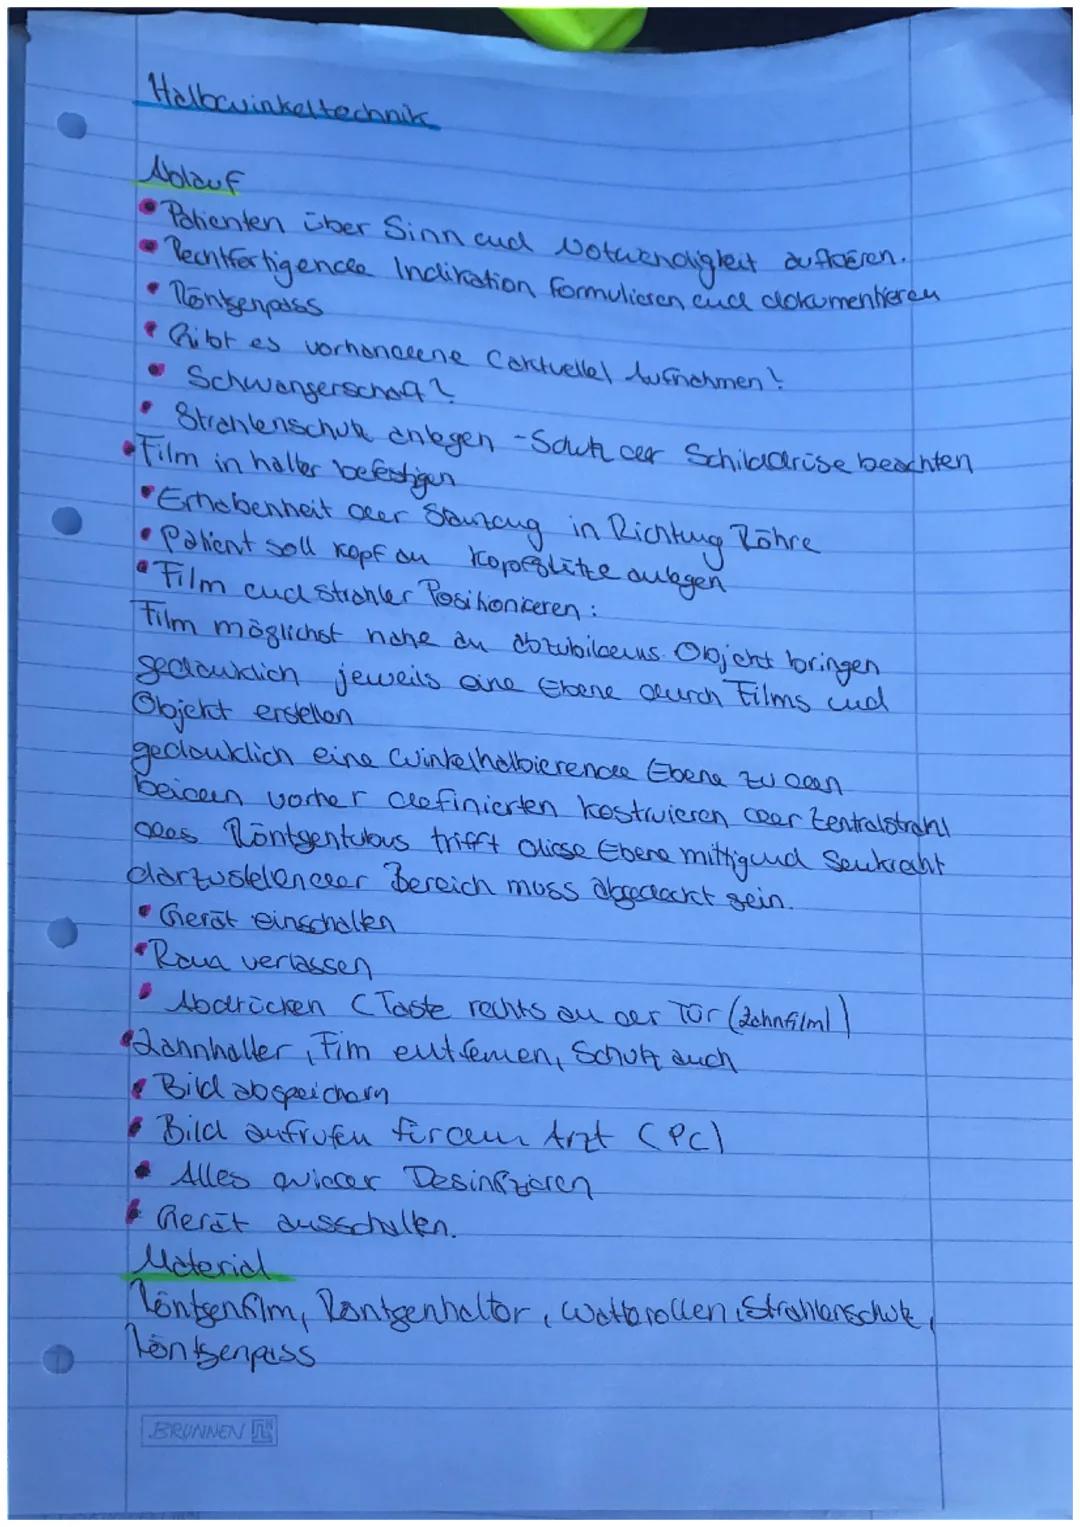 Halbwinkeltechnik
Ablauf
• Patienten über Sinn und Notwendigkeit aufklären.
• Rechtfertigende Indikation formulieren und dokumentieren
• Röntgenpass
• Gibt es vorhandene (aktuelle) Aufnahmen?
• Schwangerschaft?
• Strahlenschutz anlegen - Schutz der Schilddrüse beachten
• Film in halter befestigen
• Erhabenheit der Stanzung in Richtung Röhre
• Patient soll Kopf an Kopfstütze anlegen
• Film und strahler Positionieren:
Film möglichst nahe an abzubildens Objekt bringen
gedanklich jeweils eine Ebene durch Films und
Objekt erstellen
gedanklich eine Winkelhalbierende Ebene zu den
beiden vorher definierten kostruieren der Zentralstrahl
des Röntgentubus trifft diese Ebene mittig und Senkrecht
darzustellender Bereich muss abgedeckt sein.
• Gerät einschalten
• Raum verlassen
• Abdrücken (Taste rechts an der Tür (Zahnfilm))
• Zahnhalter, Fim entfernen, Schutz auch
• Bild abspeichern
• Bild aufrufen für den Arzt (PC)
• Alles wieder Desinfizieren
• Gerät ausschalten.
Material
Röntgenfilm, Röntgenhalter, Watterollen, Strahlenschutz,
Röntgenpass
BRUNNEN